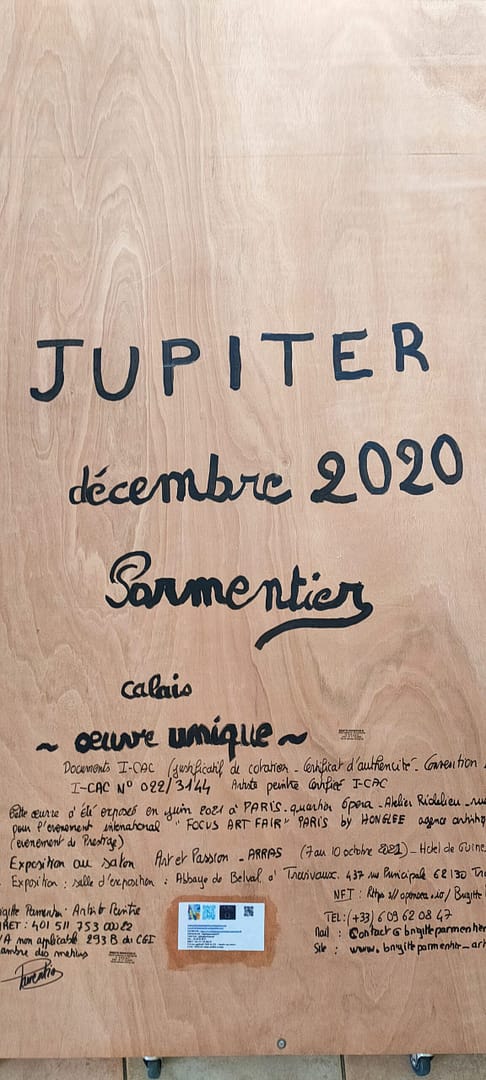 JUPITER
décembre 2020
Parmentier
calais
~ œuvre unique ~
Documents I-CAC (justificatif de cotation - Certificat d'authencité - Convention
I-CAC N° 022/3144 Artiste peintre Certifié I-CAC
Cette œuvre a été exposée en juin 2021 à PARIS - quartier Opéra - Atelier Richelieu -
pour l'évènement international "FOCUS ART FAIR" PARIS by HONGLEE agence
(évènement de Prestige)
Exposition au salon Art et Passion - ARRAS (7 au 10 octobre 2021) - Hôtel de Guînes
Exposition : salle d'exposition : Abbaye de Belval à Troisvaux. 437 rue Principale 62130
NFT : https://opensea.io/ Brigitte
Brigitte Parmentier : Artiste Peintre
TEL : (+33) 6 09 62 08 47
SIRET : 401 511 753 00022
Mail : Contact@brigitteparmentier
TVA non applicable 293 B du CGI
Site : www.brigitteparmentier-art
Chambre des métiers